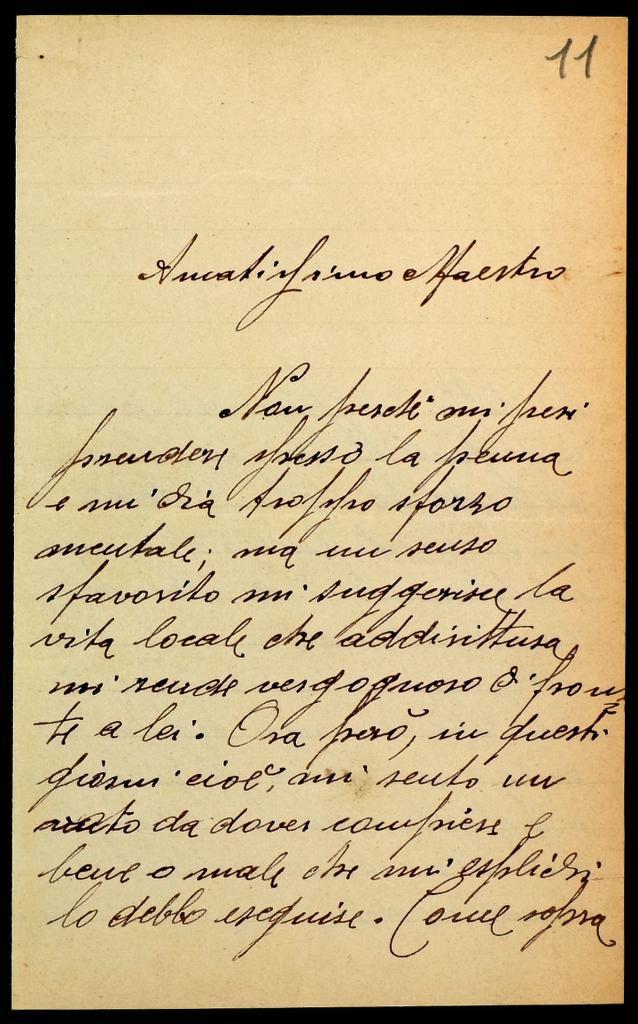 11
Amatissimo Maestro
Non perchè mi pesi
prendere spesso la penna
e mi dia troppo sforzo
mentale; ma un senso
sfavorito mi suggerisce la
vita locale che addirittura
mi rende vergognoso di fron=
te a lei. Ora però, in questi
giorni cioè, mi sento un
da dover compiere e
bene o male che mi esplichi
lo debbo eseguire. Come sopra